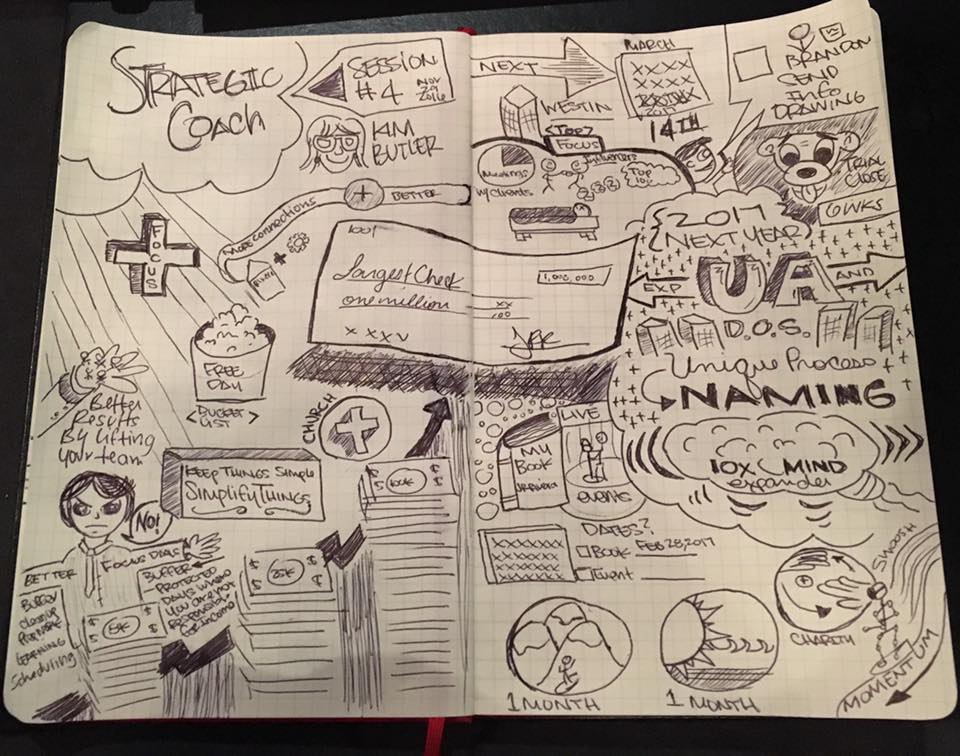 STRATEGIC
COACH
SESSION
#4
NOV
29
2016
KIM
BUTLER
More connections
+
BETTER
FOCUS
FREE
DAY
<BUCKET
LIST>
Better
Results
By lifting
your team
CHURCH
KEEP THINGS SIMPLE
SIMPLIFY THINGS
NO!
BETTER
FOCUS DAYS
BUFFER
PROTECTED
DAYS WHERE
YOU ARE NOT
RESPONSIBLE
for income
LEARNING
Scheduling
$ $
$ 25K $
$ 100K $
1001
Largest Check
one million
1,000,000
xx
100
NEXT
MARCH
XXXX
XXXX
2017
14TH
WESTIN
TOP
FOCUS
Meetings
w/clients
Influencers
TOP
BRANDON
SEND
INFO
DRAWING
TRIAL
CLOSE
2017
NEXT YEAR
EXP
UA
AND
D.O.S.
Unique Process
NAMING
10X MIND
expander
MY
BOOK
LIVE
events
DATES?
BOOK FEB 28, 2017
Event
1 MONTH
1 MONTH
CHARITY
SWOOSH
MOMENTUM